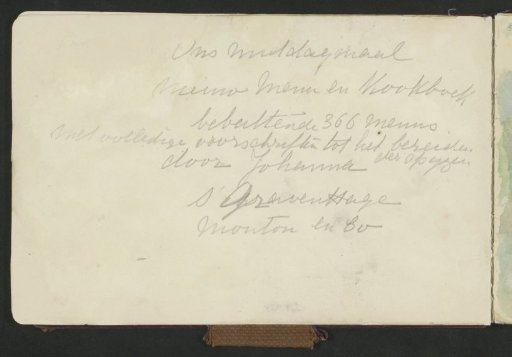 Ons middagmaal
Nieuw Menu en Kookboek
bevattende 366 menus
met volledige voorschriften tot het bereiden
der spijzen
door Johanna
s' Gravenhage
Mouton en Co